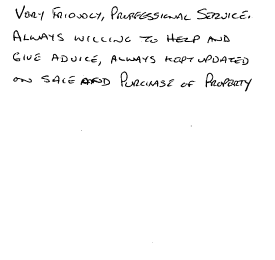 Very Friendly, Proffessional Service.
Always willing to Help and
Give Advice, always kept updated
on sale and Purchase of Property